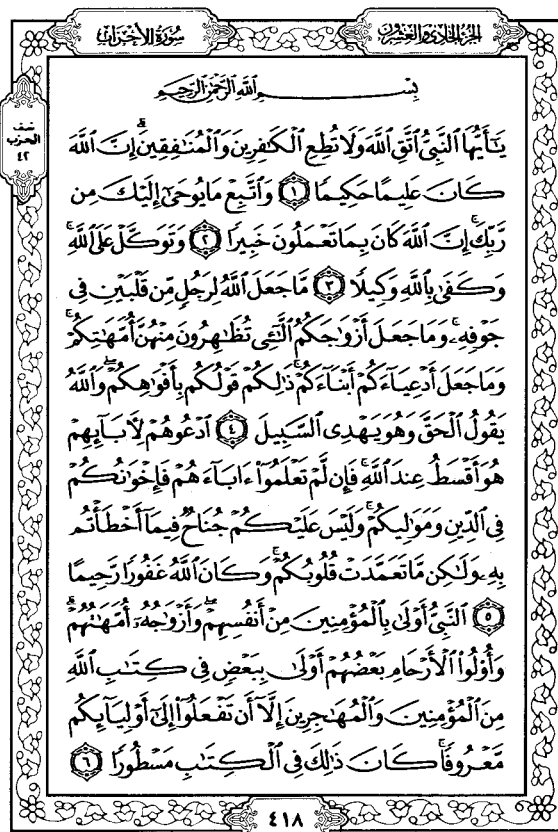 الجزء الحادي والعشرون
سورة الأحزاب
نصف
الحزب
٤٢
بِسْمِ ٱللَّهِ ٱلرَّحْمَٰنِ ٱلرَّحِيمِ
يَٰٓأَيُّهَا ٱلنَّبِيُّ ٱتَّقِ ٱللَّهَ وَلَا تُطِعِ ٱلْكَٰفِرِينَ وَٱلْمُنَٰفِقِينَ ۗ إِنَّ ٱللَّهَ
كَانَ عَلِيمًا حَكِيمًا ١ وَٱتَّبِعْ مَا يُوحَىٰٓ إِلَيْكَ مِن
رَّبِّكَ ۚ إِنَّ ٱللَّهَ كَانَ بِمَا تَعْمَلُونَ خَبِيرًا ٢ وَتَوَكَّلْ عَلَى ٱللَّهِ ۚ
وَكَفَىٰ بِٱللَّهِ وَكِيلًا ٣ مَّا جَعَلَ ٱللَّهُ لِرَجُلٍ مِّن قَلْبَيْنِ فِى
جَوْفِهِۦ ۚ وَمَا جَعَلَ أَزْوَٰجَكُمُ ٱلَّٰٓـِٔى تُظَٰهِرُونَ مِنْهُنَّ أُمَّهَٰتِكُمْ ۚ
وَمَا جَعَلَ أَدْعِيَآءَكُمْ أَبْنَآءَكُمْ ۚ ذَٰلِكُمْ قَوْلُكُم بِأَفْوَٰهِكُمْ ۖ وَٱللَّهُ
يَقُولُ ٱلْحَقَّ وَهُوَ يَهْدِى ٱلسَّبِيلَ ٤ ٱدْعُوهُمْ لِءَابَآئِهِمْ
هُوَ أَقْسَطُ عِندَ ٱللَّهِ ۚ فَإِن لَّمْ تَعْلَمُوٓا۟ ءَابَآءَهُمْ فَإِخْوَٰنُكُمْ
فِى ٱلدِّينِ وَمَوَٰلِيكُمْ ۚ وَلَيْسَ عَلَيْكُمْ جُنَاحٌ فِيمَآ أَخْطَأْتُم
بِهِۦ وَلَٰكِن مَّا تَعَمَّدَتْ قُلُوبُكُمْ ۚ وَكَانَ ٱللَّهُ غَفُورًا رَّحِيمًا
٥ ٱلنَّبِىُّ أَوْلَىٰ بِٱلْمُؤْمِنِينَ مِنْ أَنفُسِهِمْ ۖ وَأَزْوَٰجُهُۥٓ أُمَّهَٰتُهُمْ ۗ
وَأُو۟لُوا۟ ٱلْأَرْحَامِ بَعْضُهُمْ أَوْلَىٰ بِبَعْضٍ فِى كِتَٰبِ ٱللَّهِ
مِنَ ٱلْمُؤْمِنِينَ وَٱلْمُهَٰجِرِينَ إِلَّآ أَن تَفْعَلُوٓا۟ إِلَىٰٓ أَوْلِيَآئِكُم
مَّعْرُوفًا ۚ كَانَ ذَٰلِكَ فِى ٱلْكِتَٰبِ مَسْطُورًا ٦
٤١٨